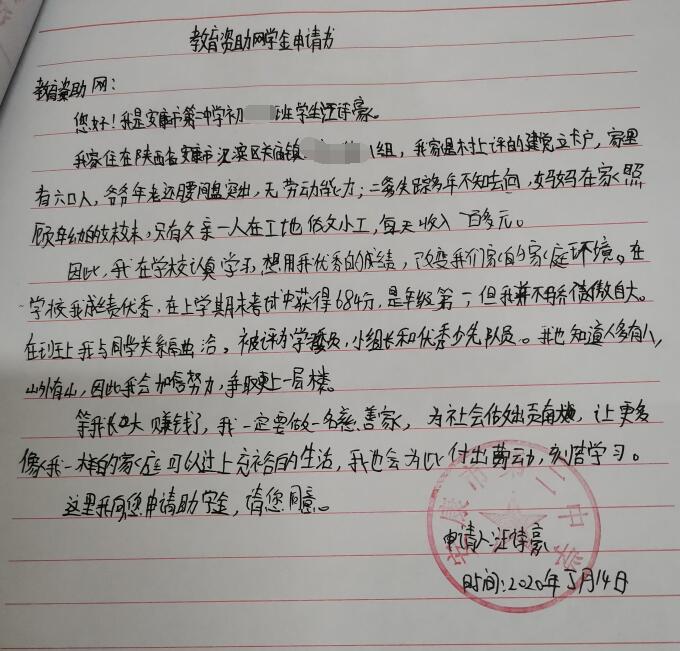 教育资助网学金申请书
教育资助网：
您好！我是安康市第二中学初 班学生汪诗豪。
我家住在陕西省安康市汉滨区关庙镇 组，我家是村上评的建党立卡户，家里
有六口人，爷爷年老还腰间盘突出，无劳动能力；二爹失踪多年不知去向，妈妈在家照
顾年幼的妹妹，只有父亲一人在工地做小工，每天收入一百多元。
因此，我在学校认真学习，想用我优秀的成绩，改变我们家的家庭环境。在
学校我成绩优秀，在上学期期末考试中获得684分，是年级第一，但我并不骄傲自大。
在班上我与同学关系融洽，被评为学习委员，小组长和优秀少先队员。我也知道人外有人，
山外有山，因此我会加倍努力，争取更上一层楼。
等我长大赚钱了，我一定要做一名慈善家，为社会做出贡献，让更多
像我一样的家庭可以过上充裕的生活，我也会为此付出劳动，刻苦学习。
这里我向您申请助学金，请您同意。
申请人：汪诗豪
时间：2020年5月14日
安康市第二中学